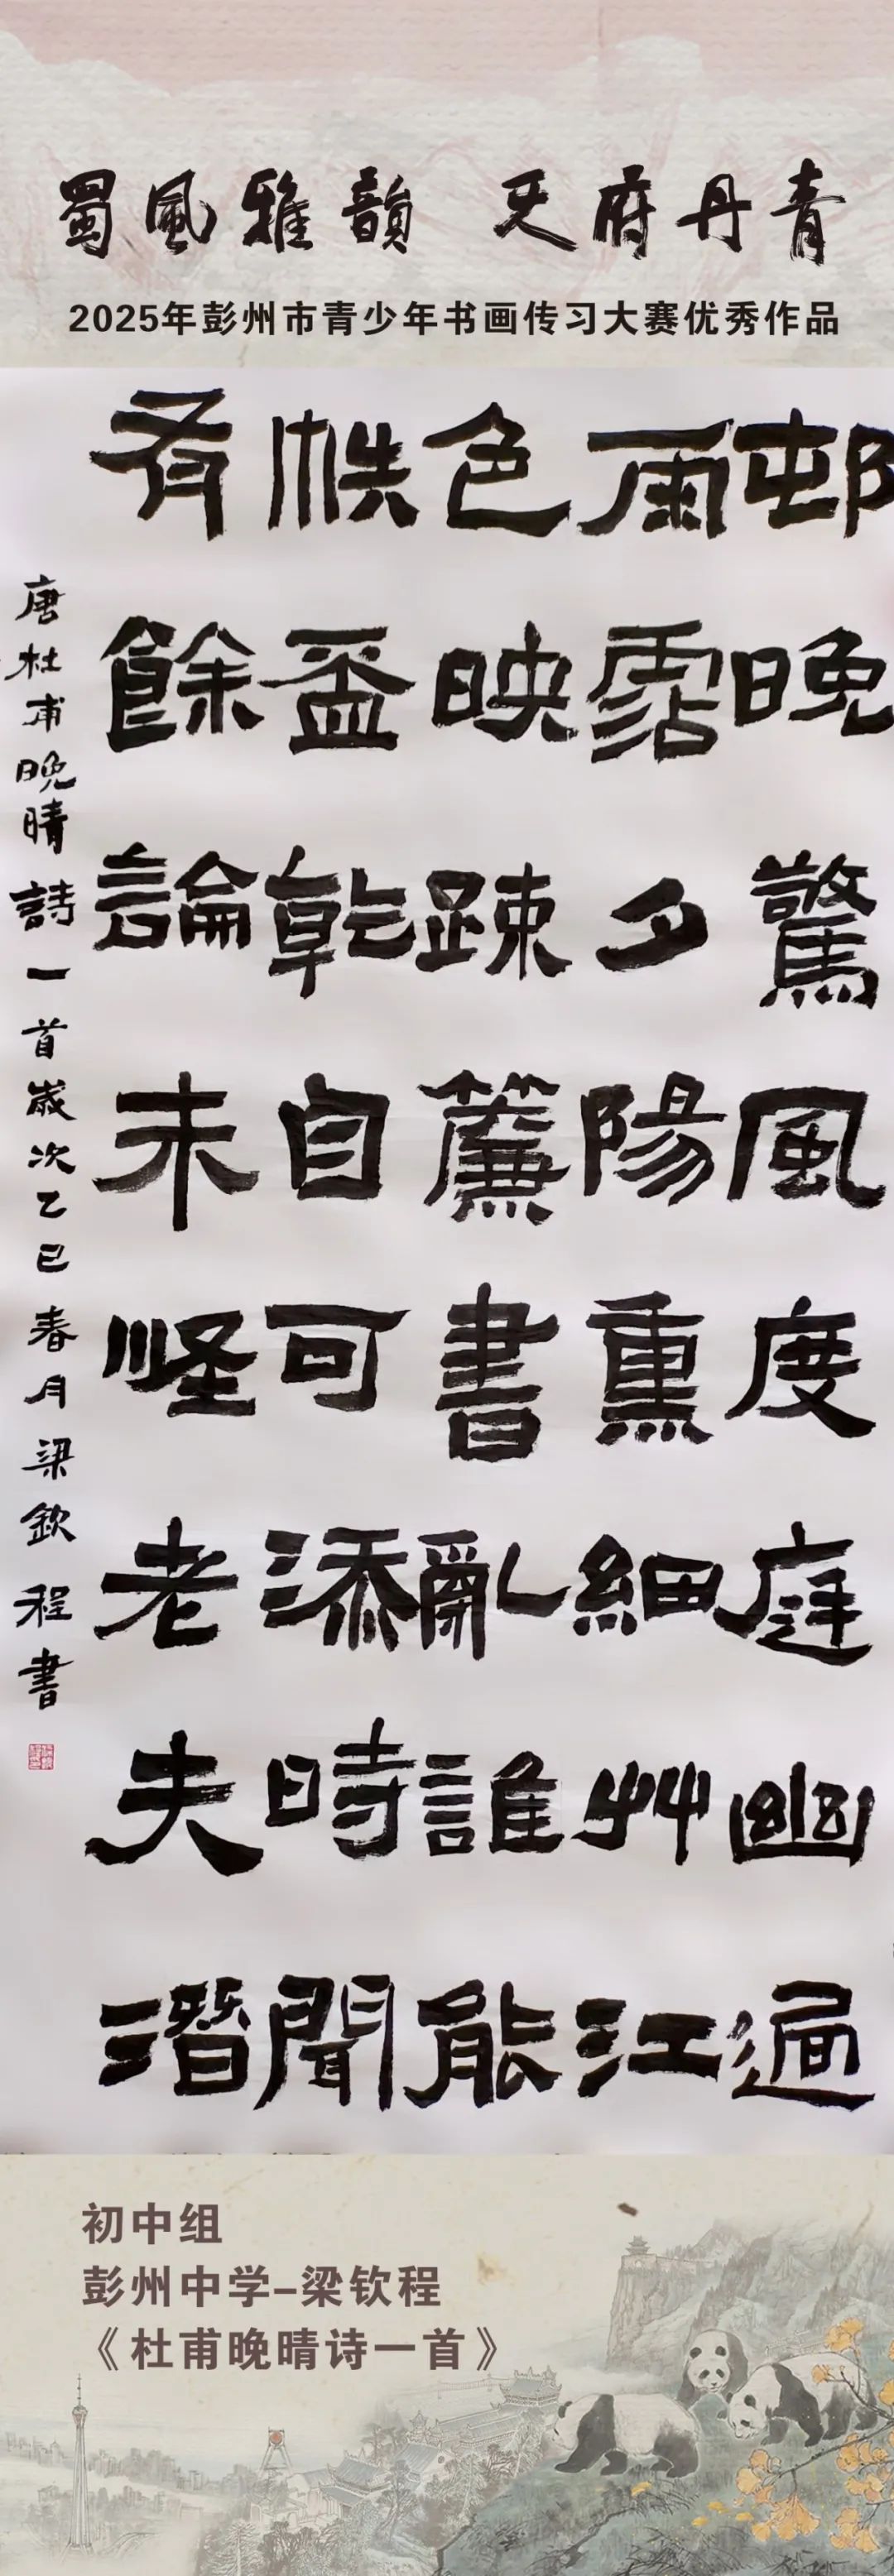 蜀風雅韻 天府丹青
2025年彭州市青少年书画传习大赛优秀作品
邨晚驚風度庭幽過
雨霑夕陽熏細艸江
色映踈簾書亂誰能
帙盃乾自可添時聞
有餘論未怪老夫潛
唐杜甫晚晴詩一首歲次乙巳春月梁欽程書
初中组
彭州中学-梁钦程
《杜甫晚晴诗一首》